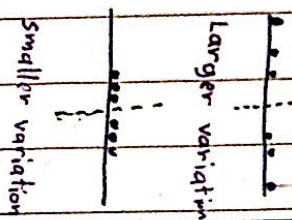 Larger variation
smaller variation